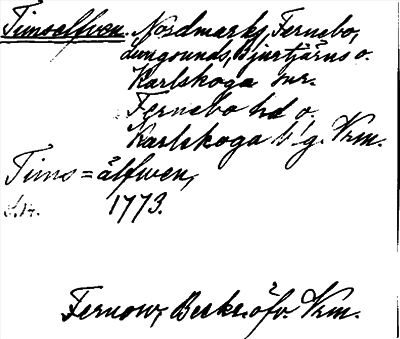 Timsälfven. Nordmarks, Fernebo,
Lungsunds, Bjurtjärns o.
Karlskoga snr.
Fernebo hd o.
Karlskoga b/g. Vrm.
Tims=älfwen,
s. 14. 1773.
Fernow, Beskr. öfv. Vrm.